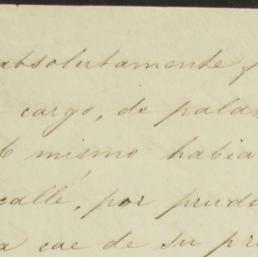 absolutamente
cargo, de pala
mismo habia
calle, por prude
a cae de su pr